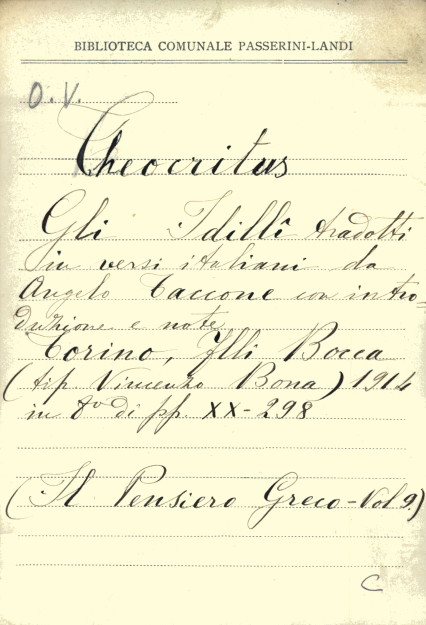 BIBLIOTECA COMUNALE PASSERINI-LANDI
O. V.
Theocritus
Gli Idillî tradotti
in versi italiani da
Angelo Taccone con intro=
duzione e note
Torino, Flli Bocca
(tip. Vincenzo Bona) 1914
in 8º di pp. XX-298
(Il Pensiero Greco-Vol 9.)
C